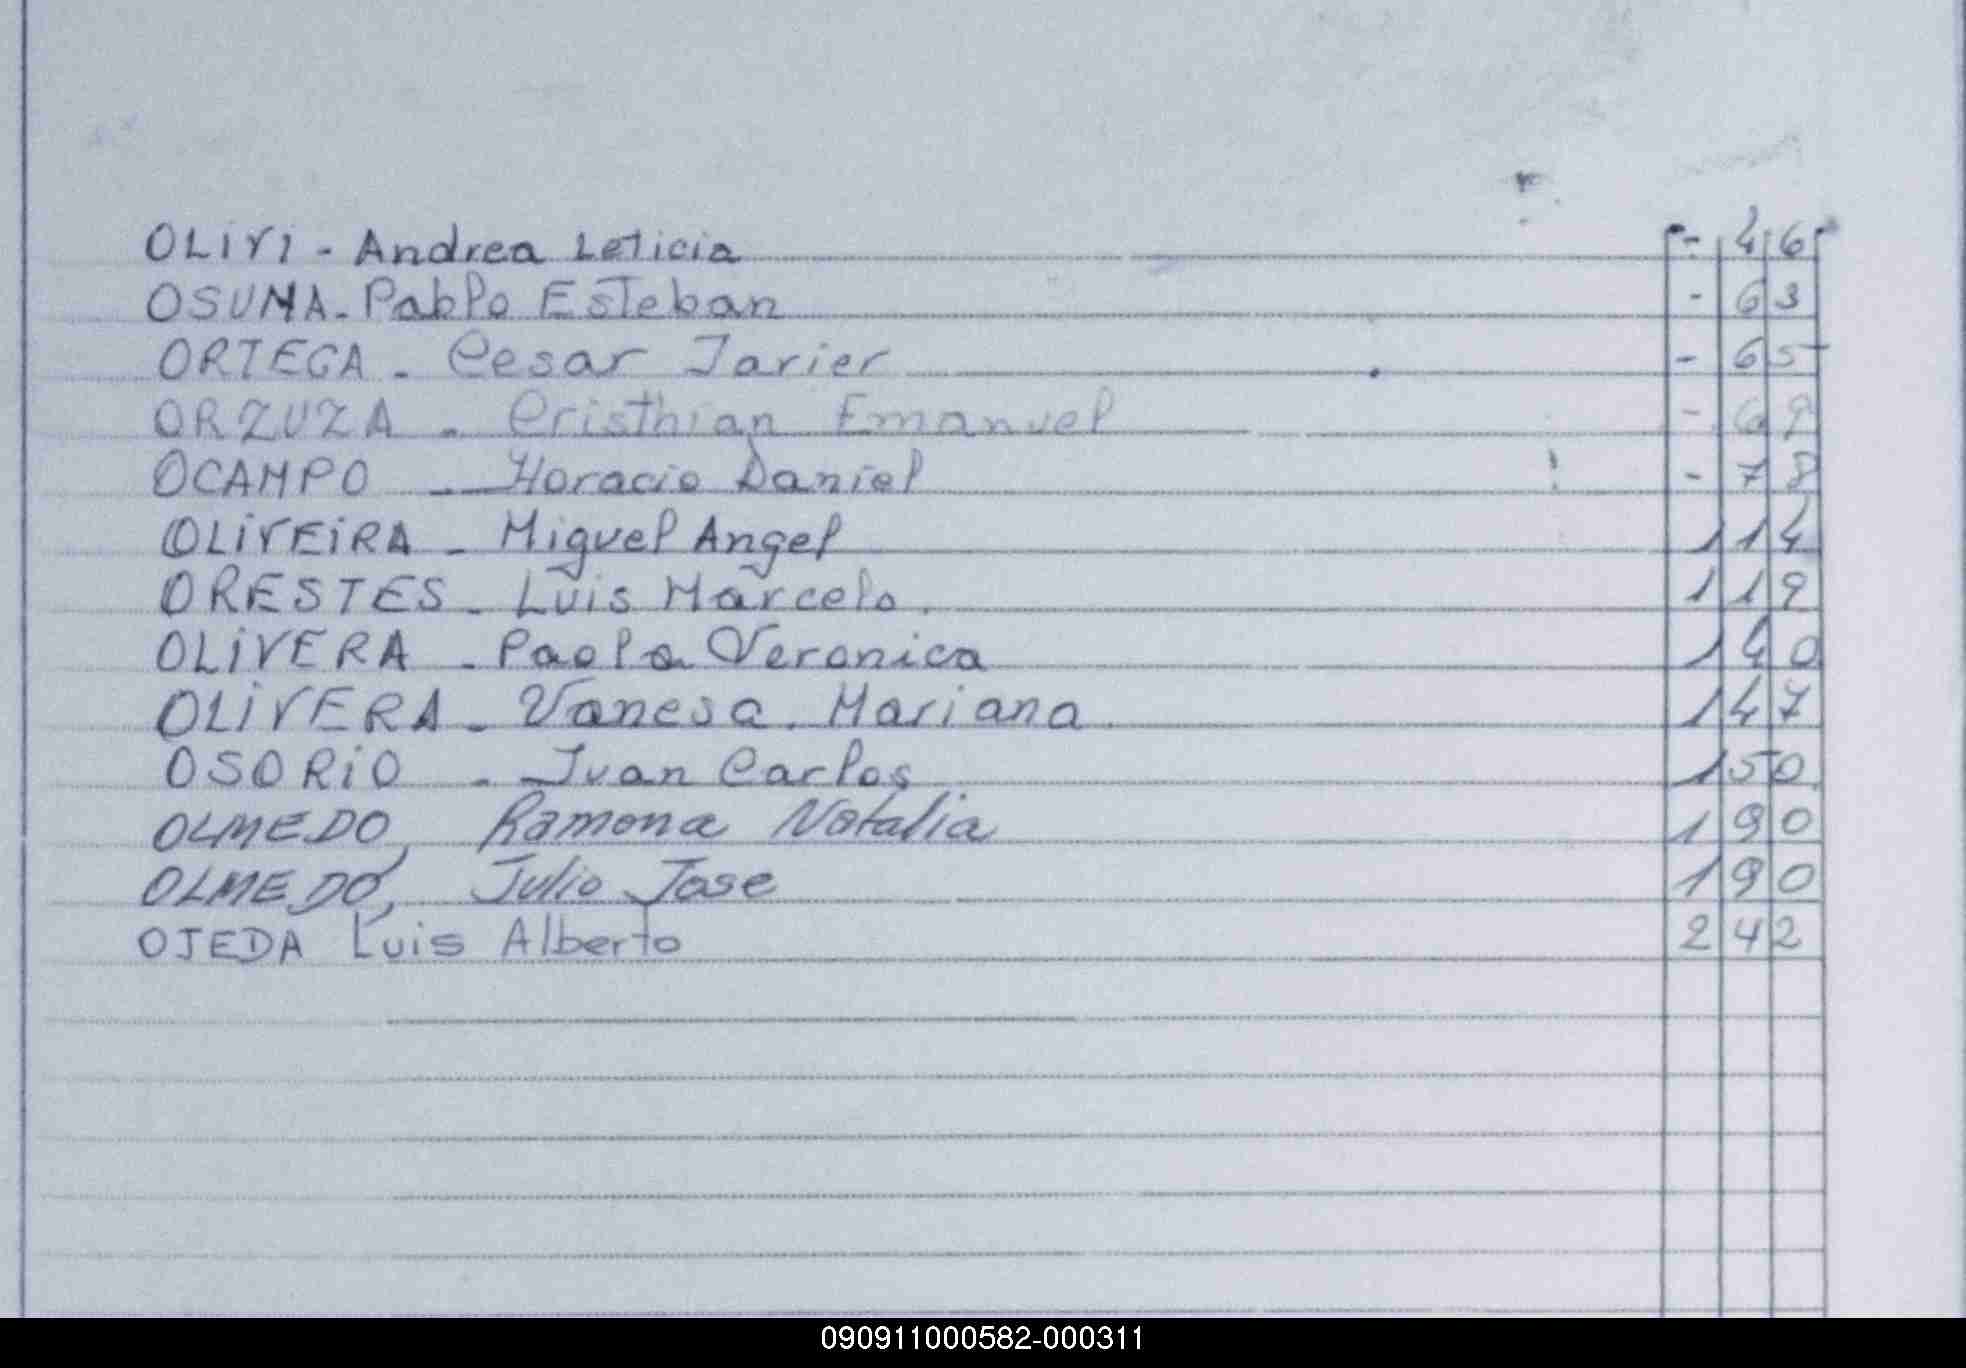 OLIVI - Andrea Leticia - 46
OSUNA - Pablo Esteban - 63
ORTEGA - Cesar Javier - 65
ORZUZA - Cristhian Emanuel - 69
OCAMPO - Horacio Daniel - 78
OLIVEIRA - Miguel Angel 114
ORESTES - Luis Marcelo. 119
OLIVERA - Paola Veronica 140
OLIVERA - Vanesa. Mariana 147
OSORIO - Juan Carlos 150
OLMEDO, Ramona Natalia 190
OLMEDO, Julio Jose 190
OJEDA Luis Alberto 242
090911000582-000311